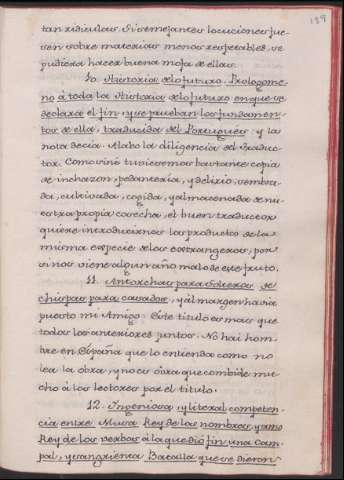 139
tan ridiculas. Si semejantes locuciones fue-
sen sobre materias menos respetables, se
pudiera hacer buena mofa de ellas.
10. Historia de lo futuro. Prologome-
no á toda la Historia de lo futuro en que se
declara el fin, y se prueban los fundamen-
tos de ella, traducida del Portugues: y la
nota decia. Alabo la diligencia del Traduc-
tor. Como si no tuviesemos bastante copia
de inchazon, pedanteria, y delirio, sembra-
da, cultivada, cogida, y almacenada de nu-
estra propia cosecha, el buen traductor
quiere introducirnos los productos de la
misma especie de los extrangeros, por
si nos viene algun año malo de este fruto.
11. Antorchas para solteros, de
chispas para casados, y al margen havia
puesto mi Amigo: Este titulo es mas que
todos los anteriores juntos. No hai hom-
bre en España que lo entienda como no
lea la obra, y no es obra que combide mu-
cho á los lectores por el titulo.
12. Ingeniosa y literal competen-
cia entre Musa Rey de los nombres, y Amo
Rey de los verbos á la que dio fin una Cam-
pal, y sangrienta Batalla que se dieron